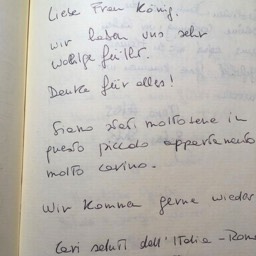 Liebe Frau König.
wir haben uns sehr
wohlge fühlt.
Danke für alles!
Siamo stati molto bene in
questo piccolo appartamento
molto carino.
Wir komma gerne wieder
Cari saluti dell'Italia - Roma